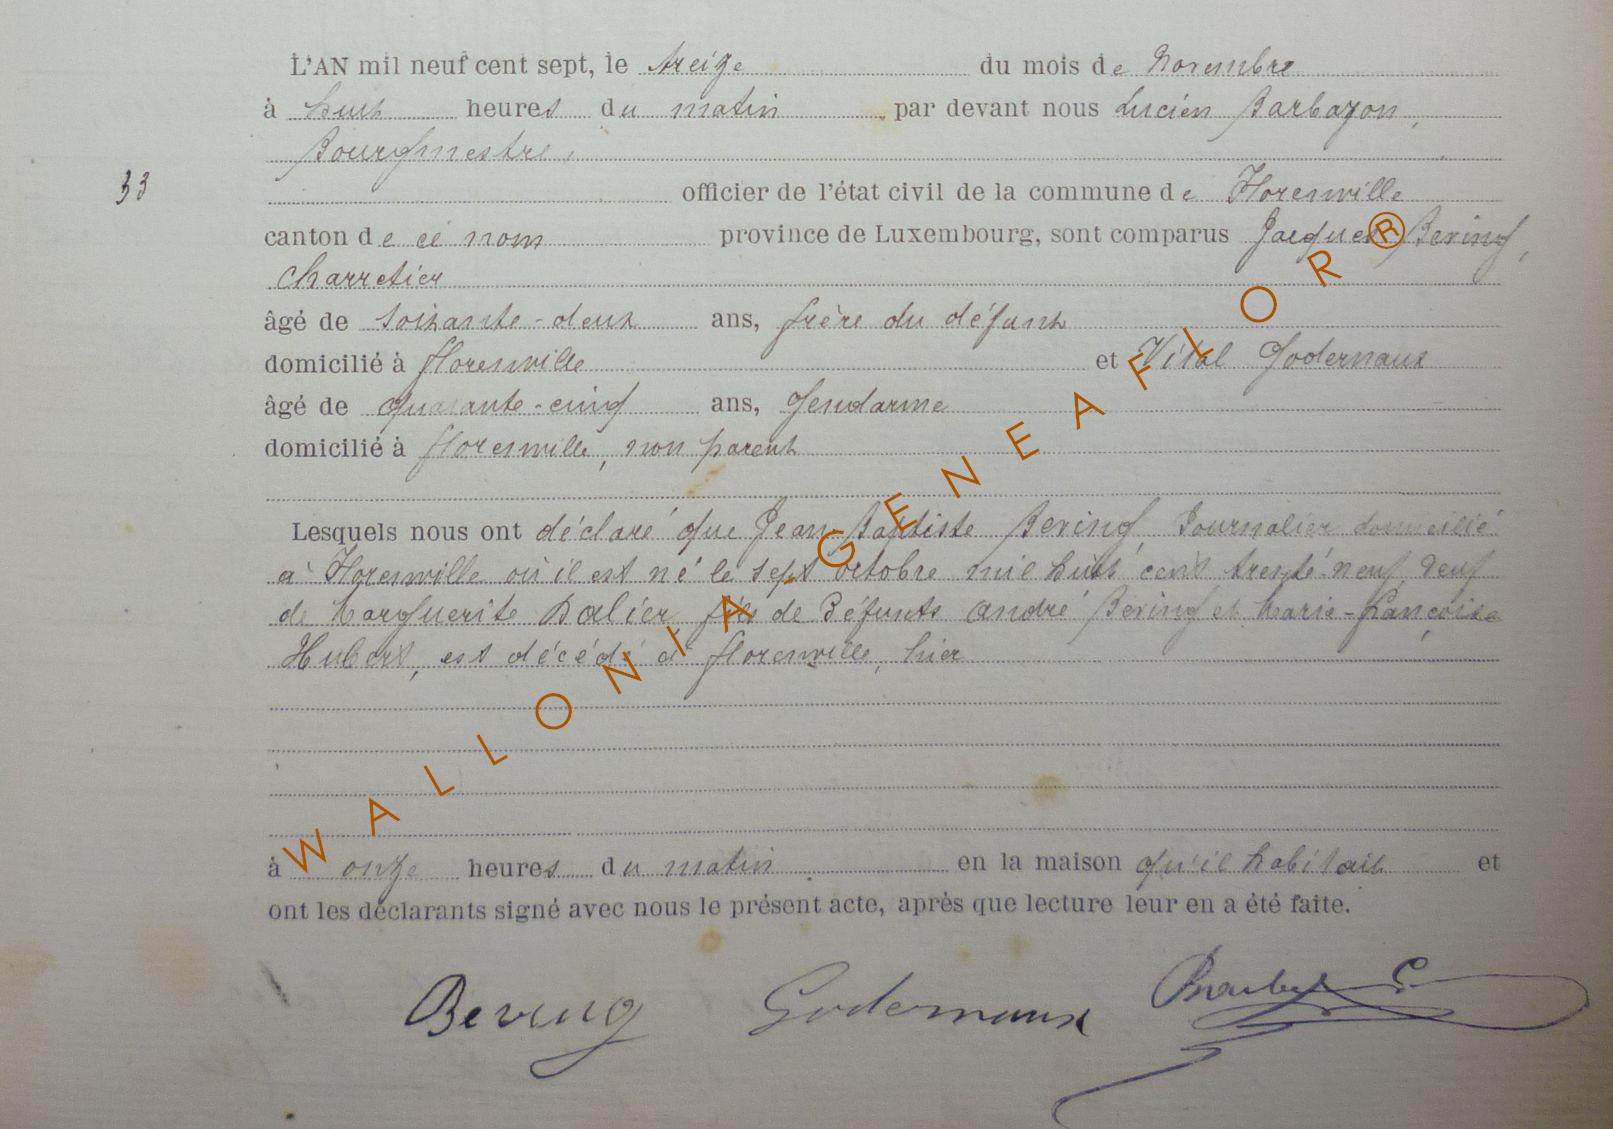 L'AN mil neuf cent sept, le treize du mois de Novembre
à huit heures du matin par devant nous Lucien Barbazon,
Bourgmestre,
33 officier de l'état civil de la commune de Florenville
canton de ce nom province de Luxembourg, sont comparus Jacques Bering,
Charretier
âgé de soixante-deux ans, frère du défunt
domicilié à Florenville et Vital Godernaux
âgé de quarante-cinq ans, Gendarme
domicilié à Florenville, non parent
Lesquels nous ont déclaré que Jean-Baptiste Bering Journalier domicilié
à Florenville où il est né le sept octobre mil huit cent trente-neuf, veuf
de Marguerite Dalier, fils de Défunts André Bering et Marie-Françoise
Hubert, est décédé à Florenville, hier
à onze heures du matin en la maison qu'il habitait et
ont les déclarants signé avec nous le présent acte, après que lecture leur en a été faite.
Bering Godernaux
WALLONIA-GENEAFLOR®